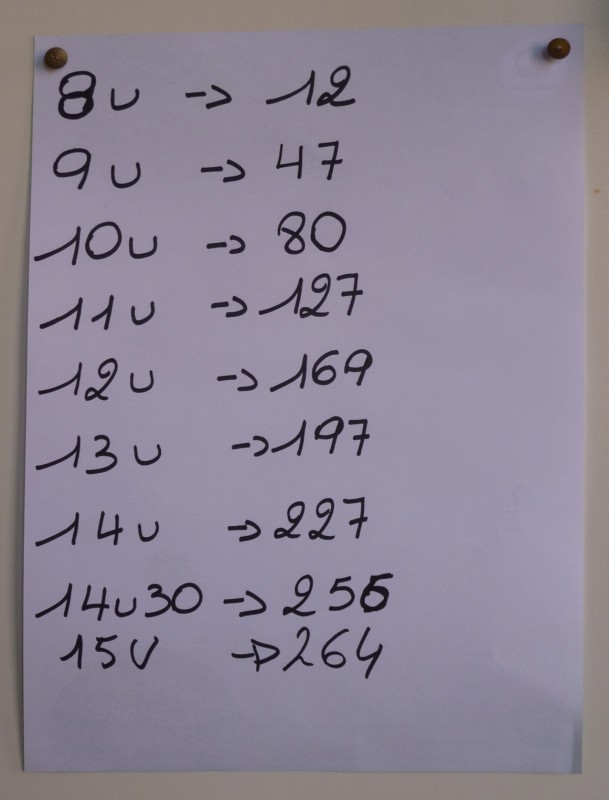 8u -> 12
9u -> 47
10u -> 80
11u -> 127
12u -> 169
13u -> 197
14u -> 227
14u30 -> 256
15u -> 264